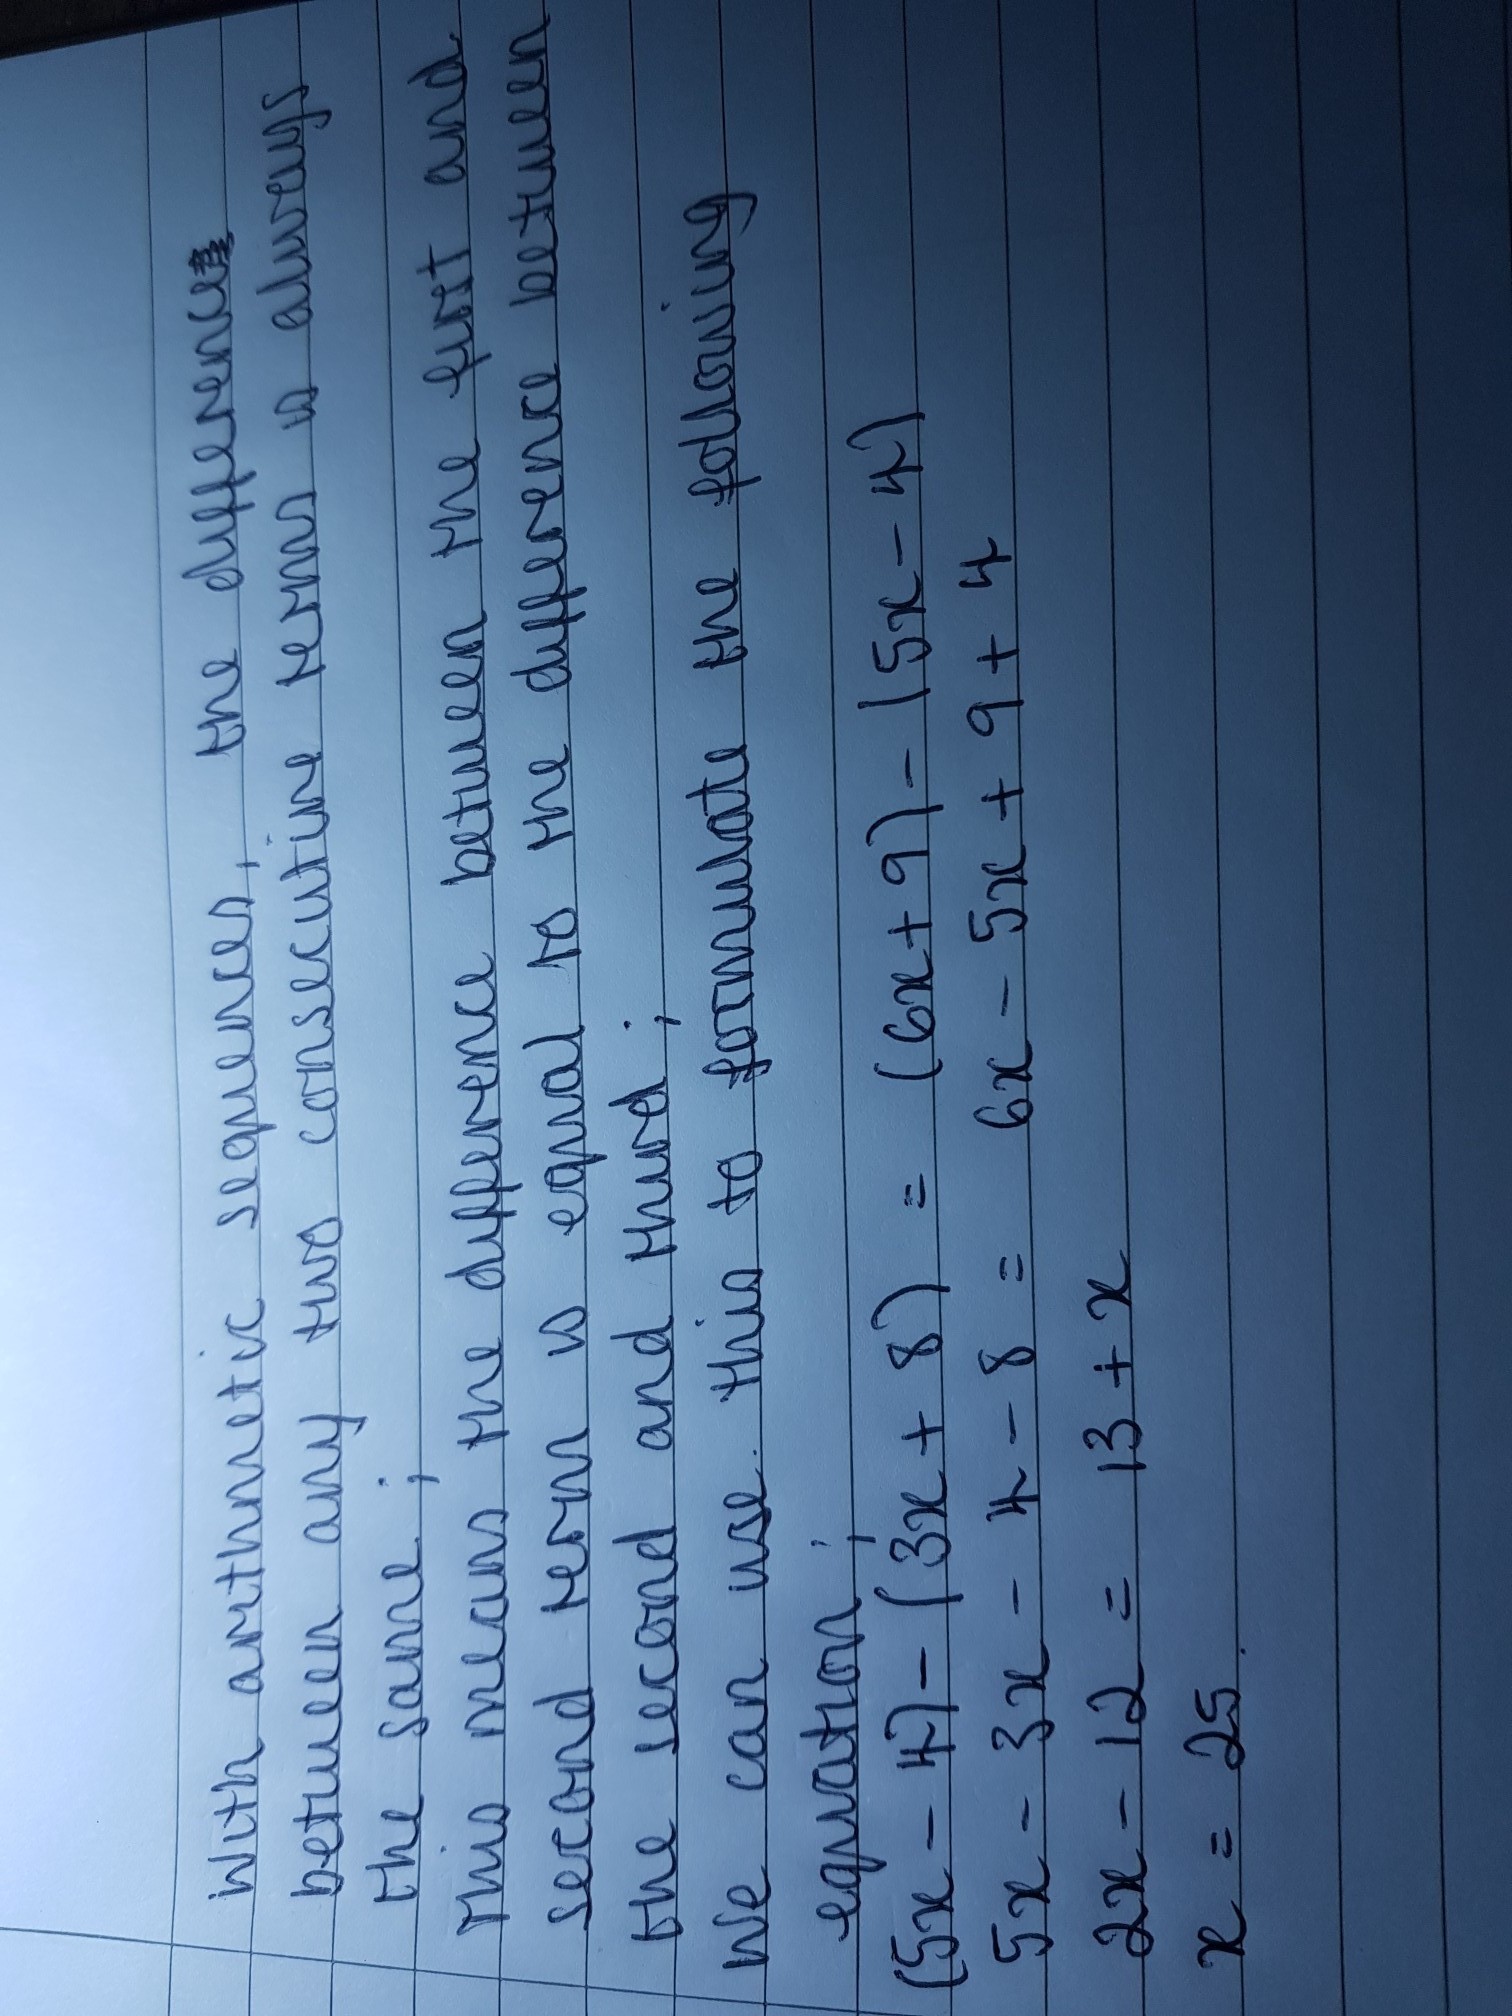 With arithmetic sequences, the difference
between any two consecutive terms is always
the same;
This means the difference between the first and
second term is equal to the difference between
the second and third;
We can use this to formulate the following
equation;
(5x - 4) - (3x + 8) = (6x + 9) - (5x - 4)
5x - 3x - 4 - 8 = 6x - 5x + 9 + 4
2x - 12 = 13 + x
x = 25.